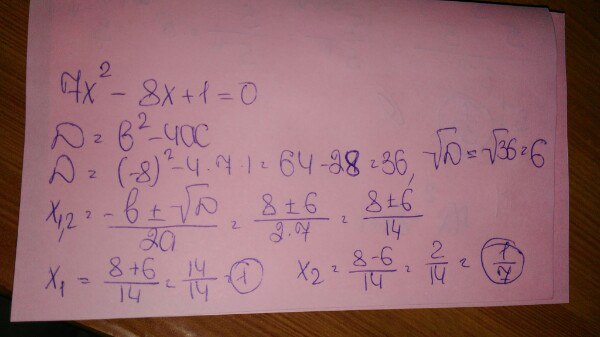 7x² - 8x + 1 = 0
D = b² - 4ac
D = (-8)² - 4 · 7 · 1 = 64 - 28 = 36, √D = √36 = 6
x₁,₂ = -b ± √D / 2a = 8 ± 6 / 2·7 = 8 ± 6 / 14
x₁ = 8 + 6 / 14 = 14 / 14 = 1 x₂ = 8 - 6 / 14 = 2 / 14 = 1 / 7